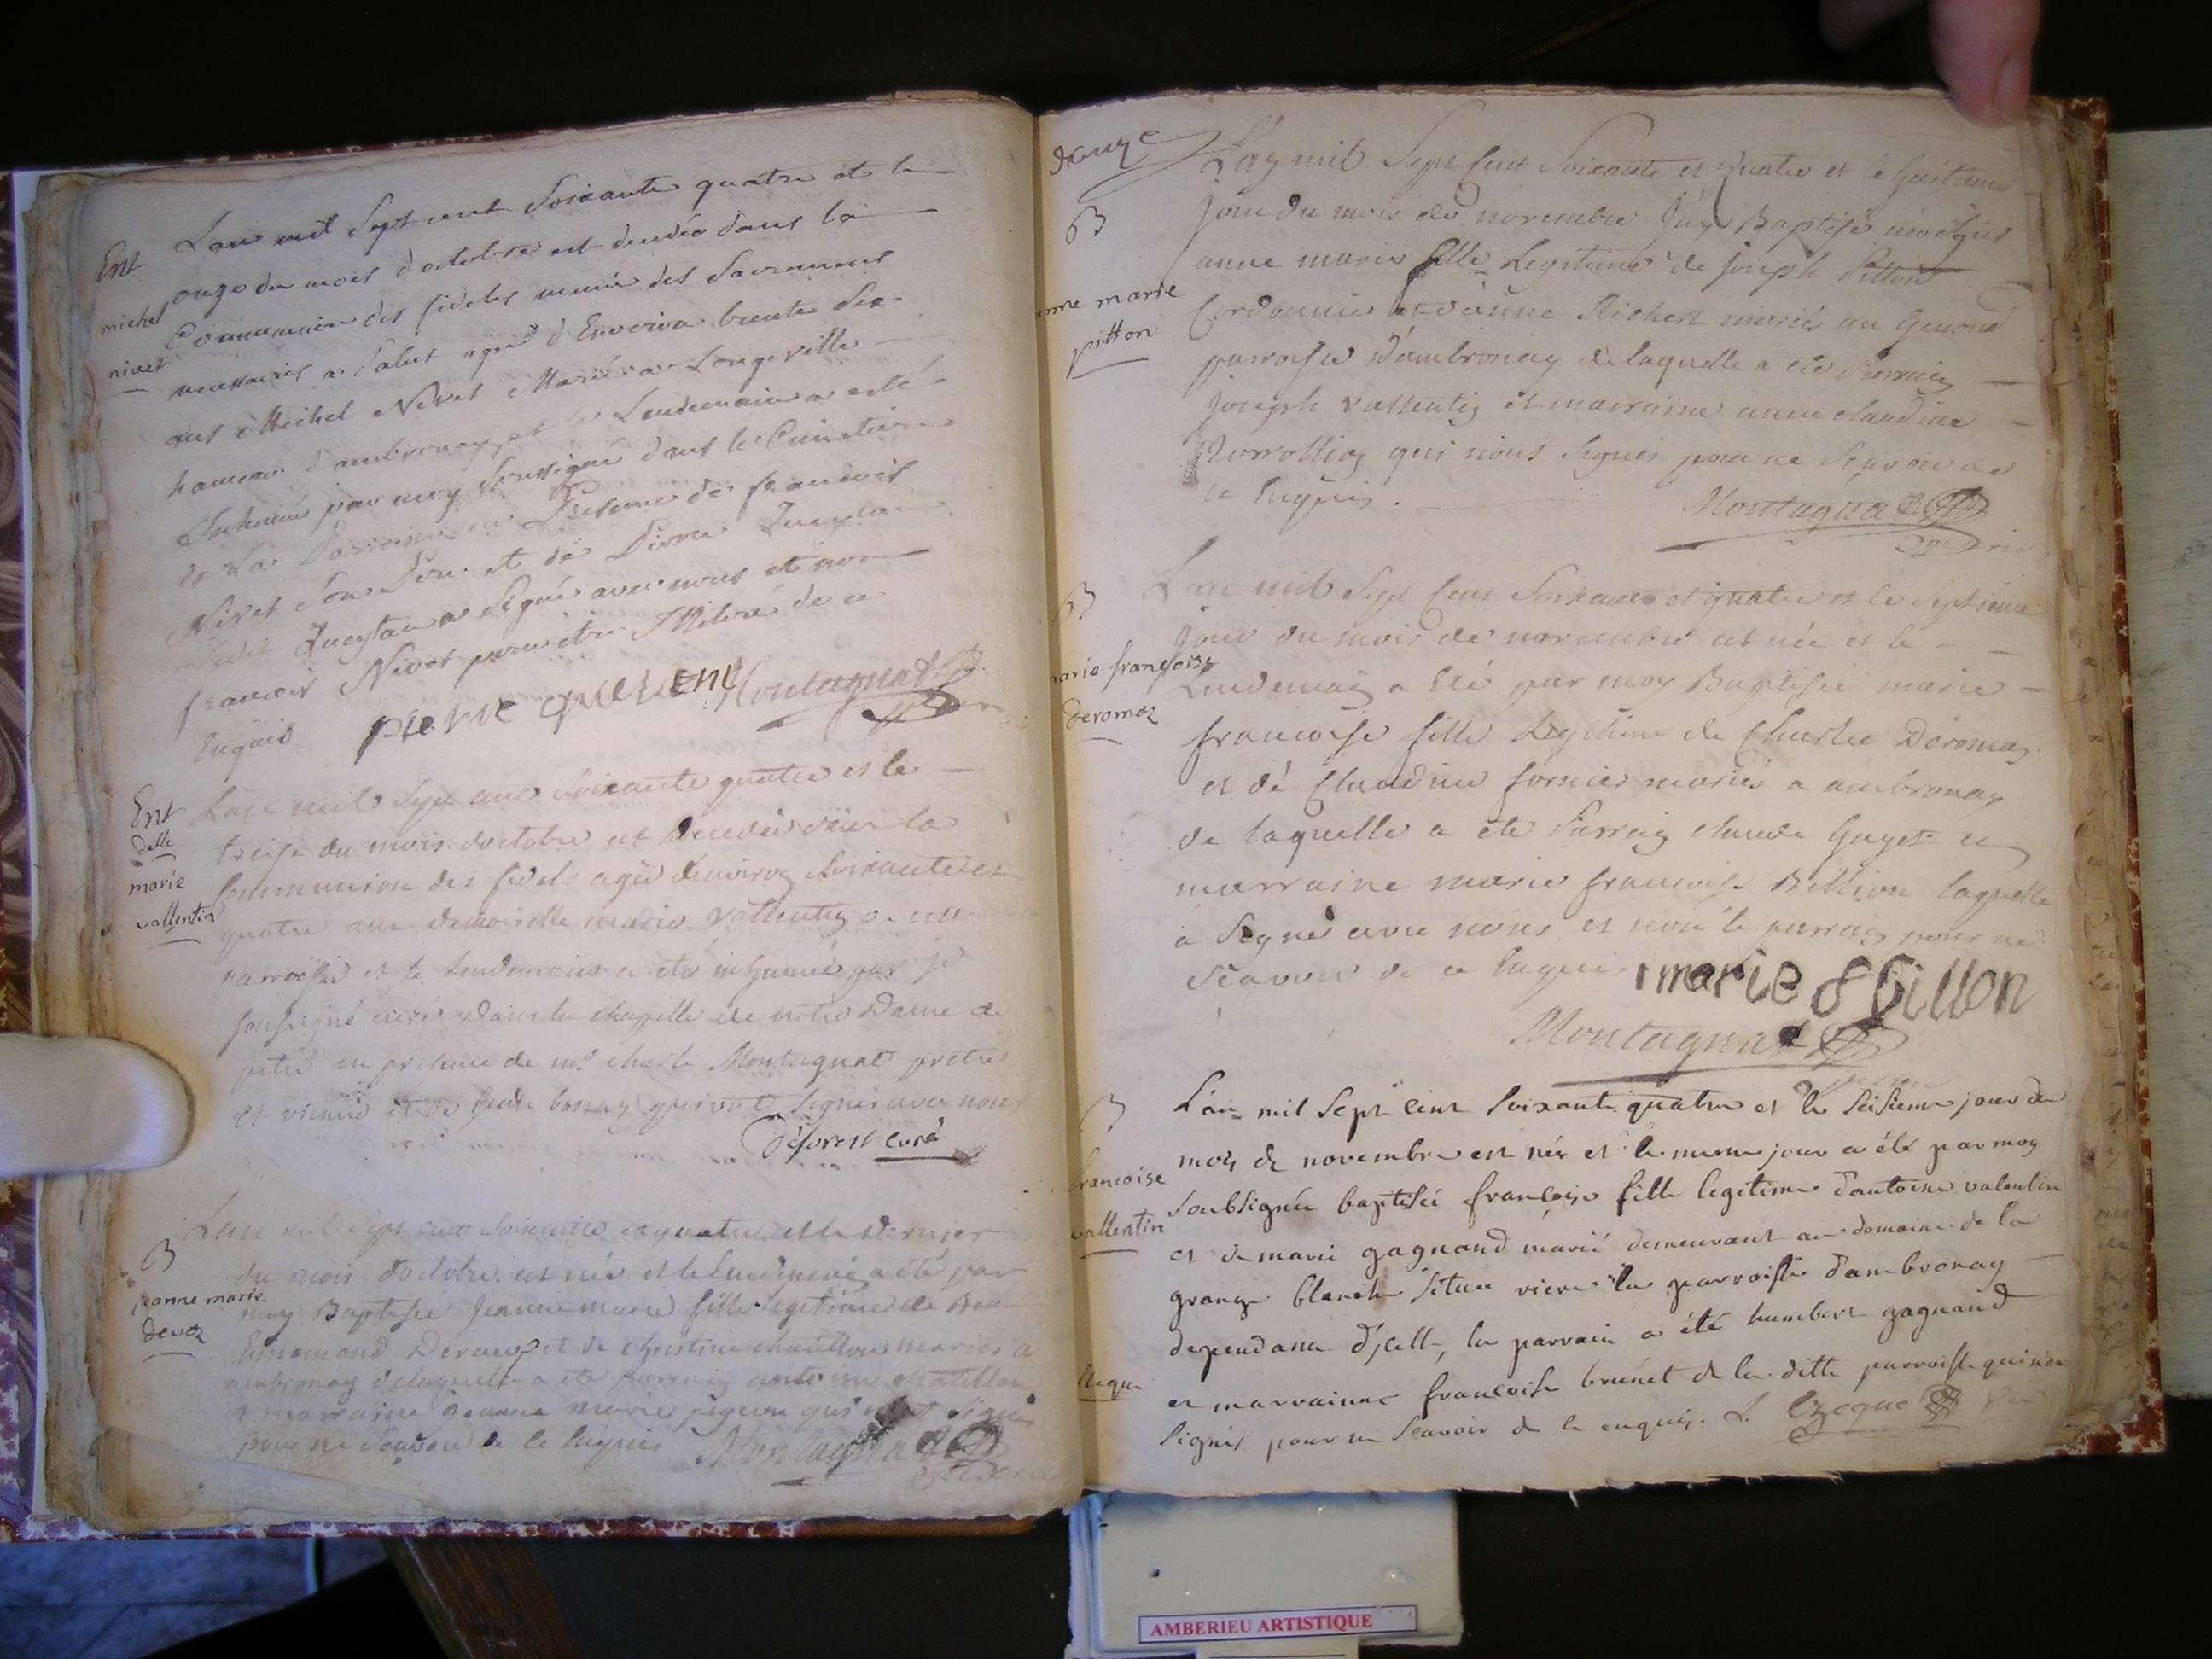 Ent
michel
nivet
Lan mil Sept cent Soixante quatre et le
onze du mois doctobre est decedéé dans la
Communion des fideles munie des Sacremens
necessaires a Salut agée d Environ trente Six
ans Michel Nivet Marié a Longeville
hameau d'ambronay, et le Lendemain a esté
Inhumé par moy Soussigné dans le Cimetiere
de La Parroisse en Présence de francois
Nivet Son Pere et de Pierre
Ledit a Signé avec nous et non
francois Nivet pour etre Illitéré de ce
Enquis
pierre Montagnat
Ent
delle
marie
vallentin
Lan mil Sept cent Soixante quatre et le
treise du mois doctobre est decedée dans la
Communion des fidels agée denviron Soixante et
quatre ans demoiselle marie vallentin de cette
parroisse et le lendemain a été inhumée par je
soussigné curé dans la chapelle de notre Dame de
pitié en presence de mre charle Montagnat pretre
et vicaire et de qui ont Signés avec nous
deforest curé
B
jeanne marie
devoz
Lan mil Sept cent Soixante et quatre et le dernier
du mois doctobre est née et le lendemain a été par
moy Baptisée Jeanne marie fille legitime de
et de Christine chatillon mariés a
ambronay delaquelle a été parrain antoine chatillon
et marraine jeanne marie qui n'ont Signés
pour ne Scavoir de ce Enquis Montagnat
B
anne marie
pitton
L'an mil Sept Cent Soixante et quatre et le huitieme
jour du mois de novembre j'ay Baptisé
anne marie fille Legitime de joseph Pitton
Cordonnier et d'anne Richert mariés au Genoud
parroisse d'ambronay de laquelle a été Parrain
joseph vallentin et marraine anne claudine
qui n'ont Signés pour ne Sçavoir de
ce Enquis.
Montagnat
B
marie françoise
deromaz
L'an mil Sept Cent Soixante et quatre et le Septieme
jour du mois de novembre est née et le
Lendemain a Eté par moy Baptisée marie
francoise fille Legitime de Charles Deromaz
et de Claudine fornier mariés a ambronay
de laquelle a été Parrain claude Guyot et
marraine marie francoise Billion laquelle
a Signé avec nous et non le parrain pour ne
Scavoir de ce Enquis marie f billon
Montagnat
B
francoise
vallentin
L'an mil Sept cent Soixante quatre et le Seisieme jour du
mois de novembre est née et le meme jour a été par moy
Soubsigné baptisée françoise fille legitime d'antoine valentin
et de marie gagnoud marié demeurant au domaine de la
grange blanche Situee riere la parroisse d'ambronay
dependance d'jcelle, le parrain a été humbert gagnoud
et marrainne francoise brunet de la ditte parroisse qui n'ont
Signés pour ne Scavoir de ce enquis. L.
AMBERIEU ARTISTIQUE